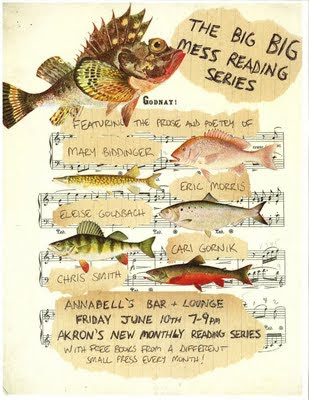 THE BIG BIG
MESS READING
SERIES
GODNAY!
FEATURING THE PROSE AND POETRY OF
MARY BIDDINGER
ERIC MORRIS
ELEISE GOLDBACH
CARI GORNIK
CHRIS SMITH
ANNABELL'S BAR + LOUNGE
FRIDAY JUNE 10TH 7-9PM
AKRON'S NEW MONTHLY READING SERIES
WITH FREE BOOKS FROM A DIFFERENT
SMALL PRESS EVERY MONTH!